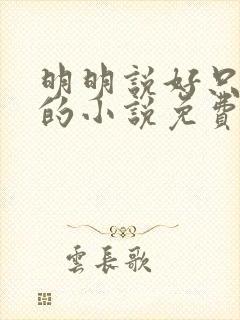 明明說好只
的小說免費
雲長歌